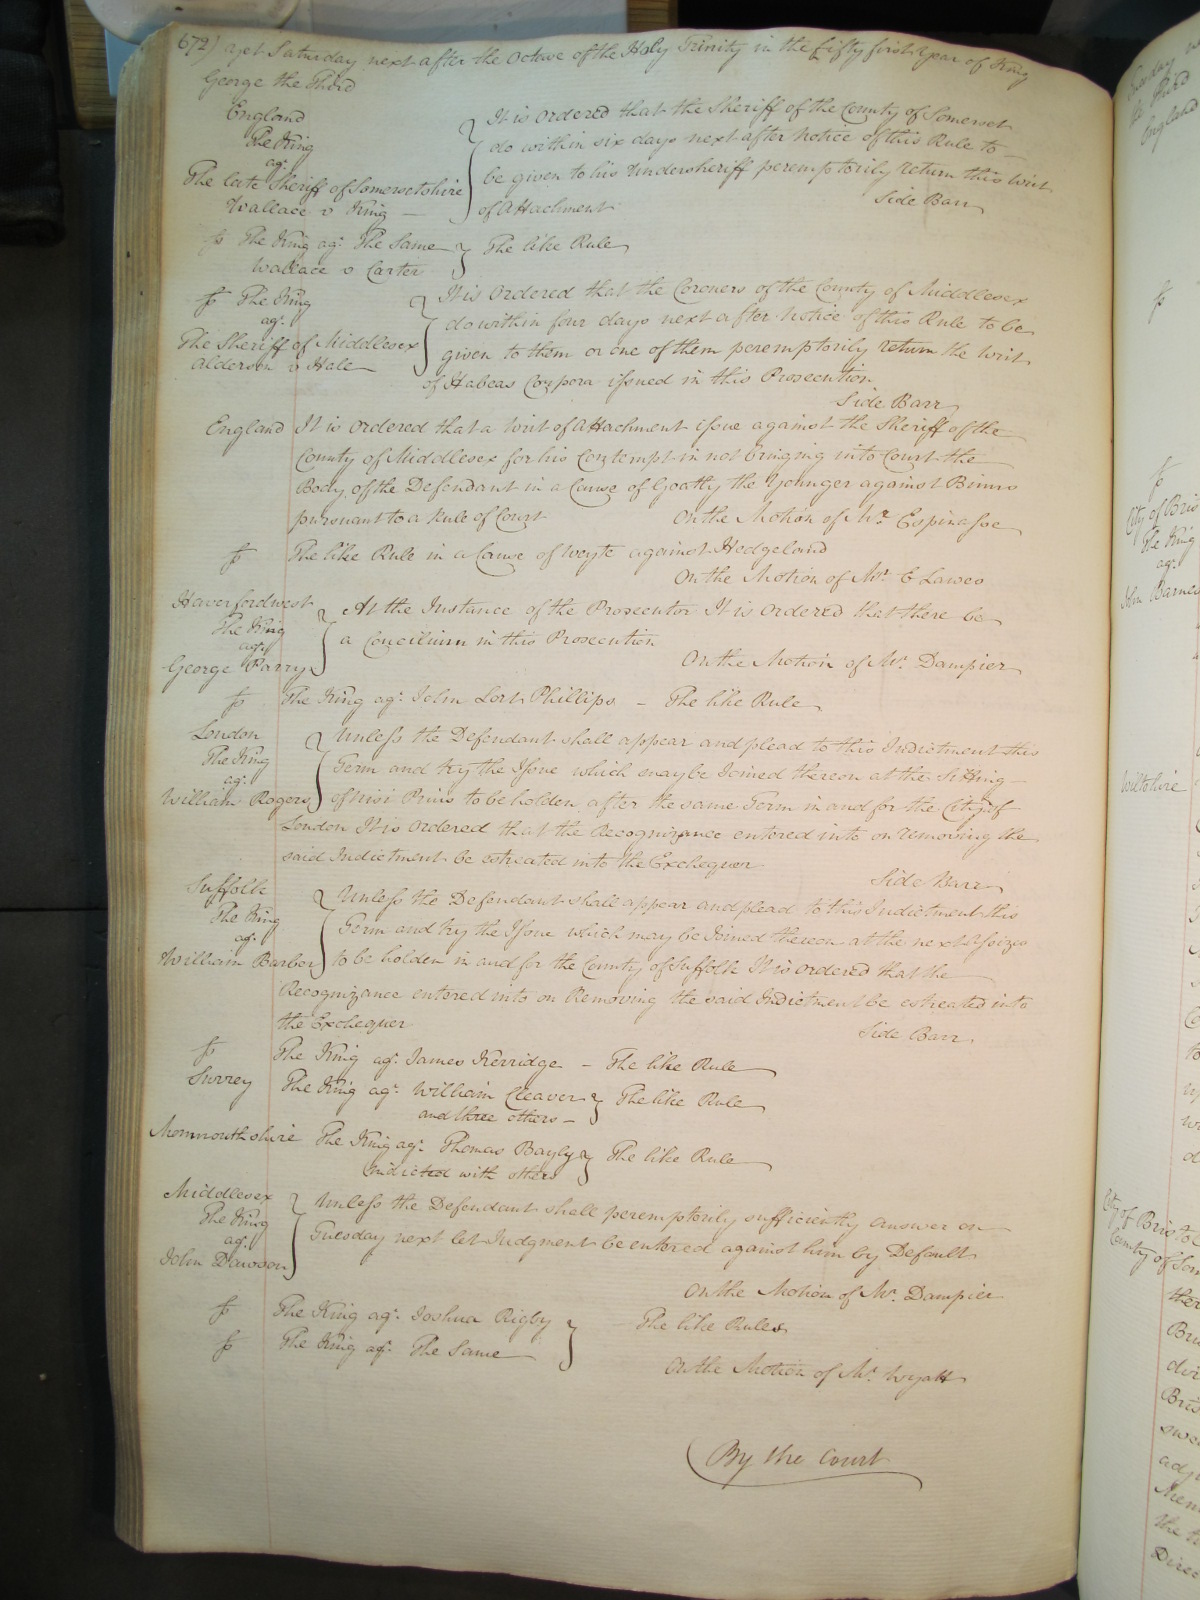 672) Yet Saturday next after the Octave of the Holy Trinity in the fifty first Year of King
George the Third
England
The King
agt.
The late Sheriff of Somersetshire
Wallace v King —
It is Ordered that the Sheriff of the County of Somerset
do within six days next after Notice of this Rule to —
be given to his Undersheriff peremptorily return this Writ
of Attachment
Side Barr
The King agt. The Same
Wallace v Carter
The like Rule
The King
agt.
The Sheriff of Middlesex
Alderson v Hale
It is Ordered that the Coroners of the County of Middlesex
do within four days next after Notice of this Rule to be
given to them or one of them peremptorily return the Writ
of Habeas Corpora issued in this Prosecution
Side Barr
England It is ordered that a Writ of Attachment issue against the Sheriff of the
County of Middlesex for his Contempt in not bringing into Court the
Body of the Defendant in a Cause of Goatly the Younger against Binns
pursuant to a Rule of Court
On the Motion of Mr. Espinasse
The like Rule in a Cause of Weyte against Hedgeland
On the Motion of Mr. E Lawes
Haverfordwest
The King
agt.
George Parry
At the Instance of the Prosecutor It is Ordered that there be
a Concilium in this Prosecution
On the Motion of Mr. Dampier
The King agt. John Lort Phillips — The like Rule
London
The King
agt.
William Rogers
Unless the Defendant shall appear and plead to this Indictment this
Term and try the Issue which may be Joined thereon at the Sitting —
of Nisi Prius to be holden after the same Term in and for the City of
London It is ordered that the Recognizance entered into on removing the
said Indictment be estreated into the Exchequer
Side Barr
Suffolk
The King
agt.
William Barber
Unless the Defendant shall appear and plead to this Indictment this
Term and try the Issue which may be Joined thereon at the next Assizes
to be holden in and for the County of Suffolk It is ordered that the
Recognizance entered into on Removing the said Indictment be estreated into
the Exchequer
Side Barr
The King agt. James Kerridge — The like Rule
Surrey The King agt. William Cleaver
and three others —
The like Rule
Monmouthshire The King agt. Thomas Bayly
Indicted with others
The like Rule
Middlesex
The King
agt.
John Dawson
Unless the Defendant shall peremptorily sufficiently answer on
Tuesday next let Judgment be entered against him by Default
On the Motion of Mr. Dampier
The King agt. Joshua Rigby
The King agt. The Same
The like Rules
On the Motion of Mr. Wyatt
By the Court
City of Bris
The King
agt.
John Barnes
Wiltshire
City of Bristol
County of Som